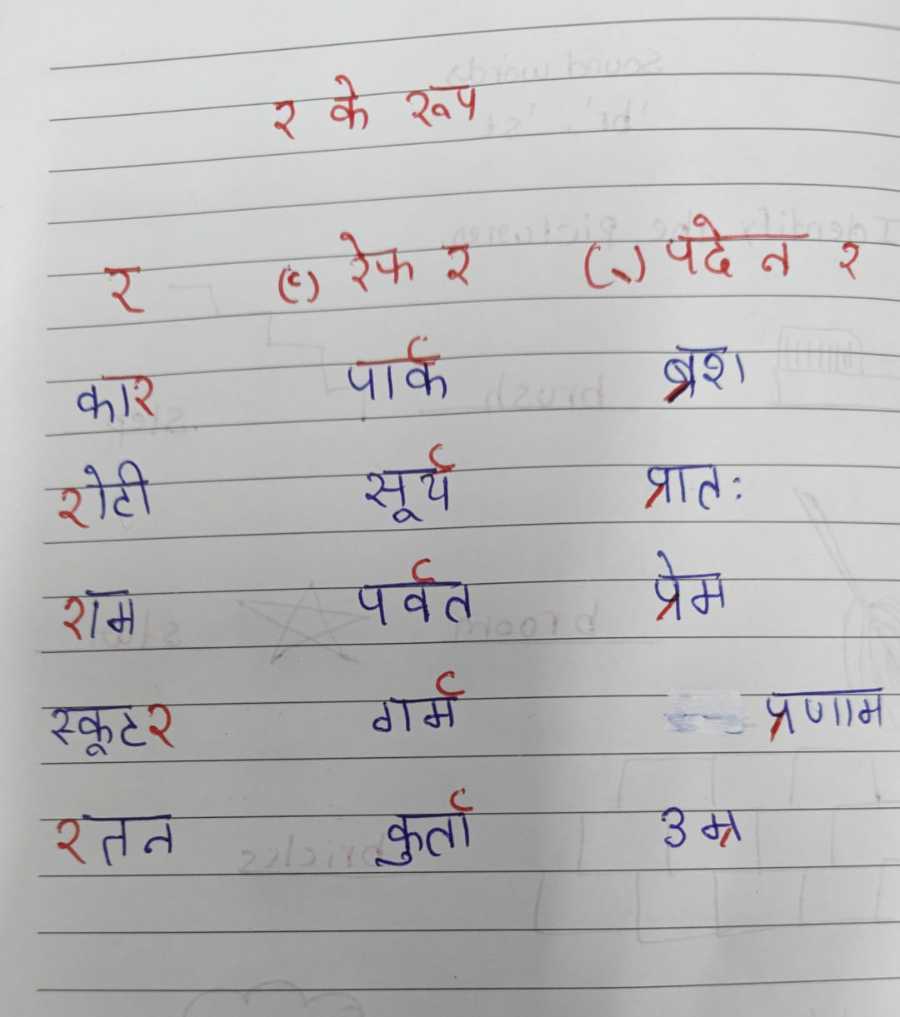 र के रूप
र (र्) रेफ र (्र) पदेन र
कार पार्क ब्रश
रोटी सूर्य प्रातः
राम पर्वत प्रेम
स्कूटर गर्म प्रणाम
रतन कुर्ता उम्र